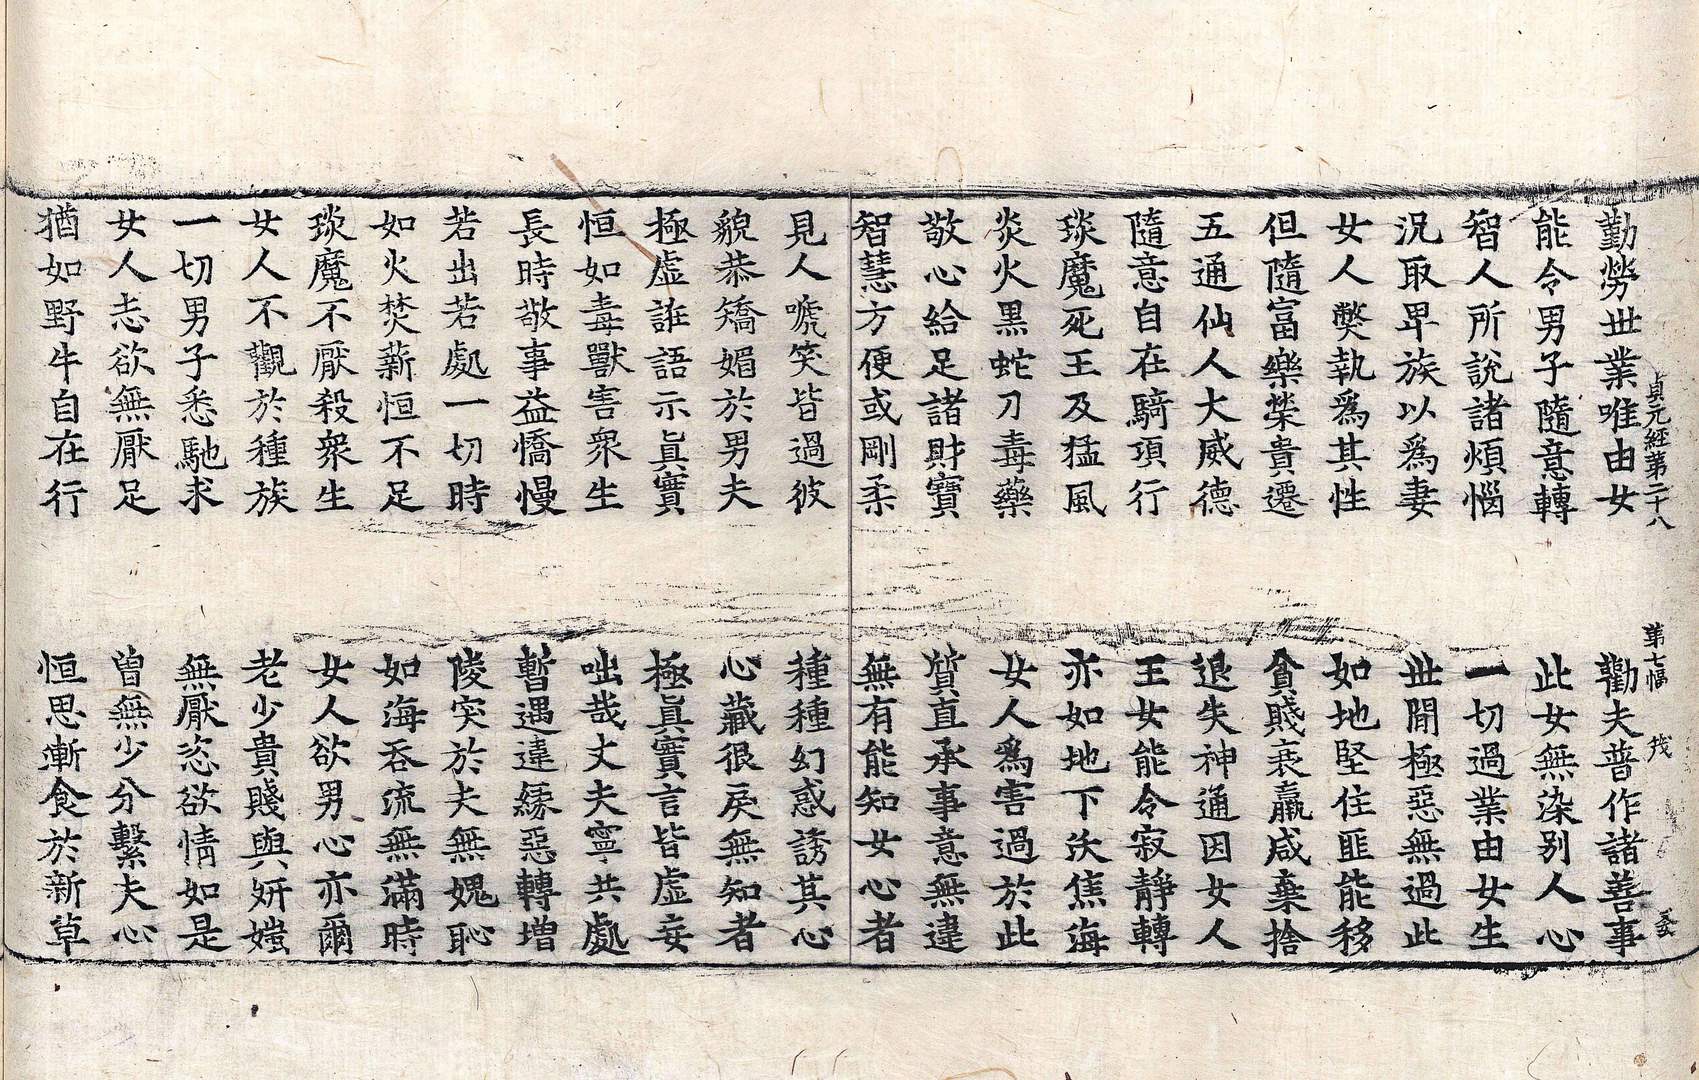 貞元經第二十八 第七幅
勤勞世業唯由女 勸夫普作諸善事
能令男子隨意轉 此女無染別人心
智人所說諸煩惱 一切過業由女生
況取卑族以爲妻 世間極惡無過此
女人獘執爲其性 如地堅住匪能移
但隨富樂榮貴遷 貧賤衰羸咸棄捨
五通仙人大威德 退失神通因女人
隨意自在騎項行 王女能令寂靜轉
琰魔死王及猛風 亦如地下沃焦海
炎火黑蛇刀毒藥 女人爲害過於此
敬心給足諸財寶 質直承事意無違
智慧方便或剛柔 無有能知女心者
見人嗁笑皆過彼 種種幻惑誘其心
貌恭矯媚於男夫 心藏很戾無知者
極虛誑語示眞實 極眞實言皆虛妄
恒如毒獸害衆生 咄哉丈夫寧共處
長時敬事益憍慢 暫遇違緣惡轉增
若出若處一切時 陵突於夫無媿恥
如火焚薪恒不足 如海吞流無滿時
琰魔不厭殺衆生 女人欲男心亦爾
女人不觀於種族 老少貴賤與姸媸
一切男子悉馳求 無厭恣欲情如是
女人志欲無厭足 曾無少分繫夫心
猶如野牛自在行 恒思漸食於新草